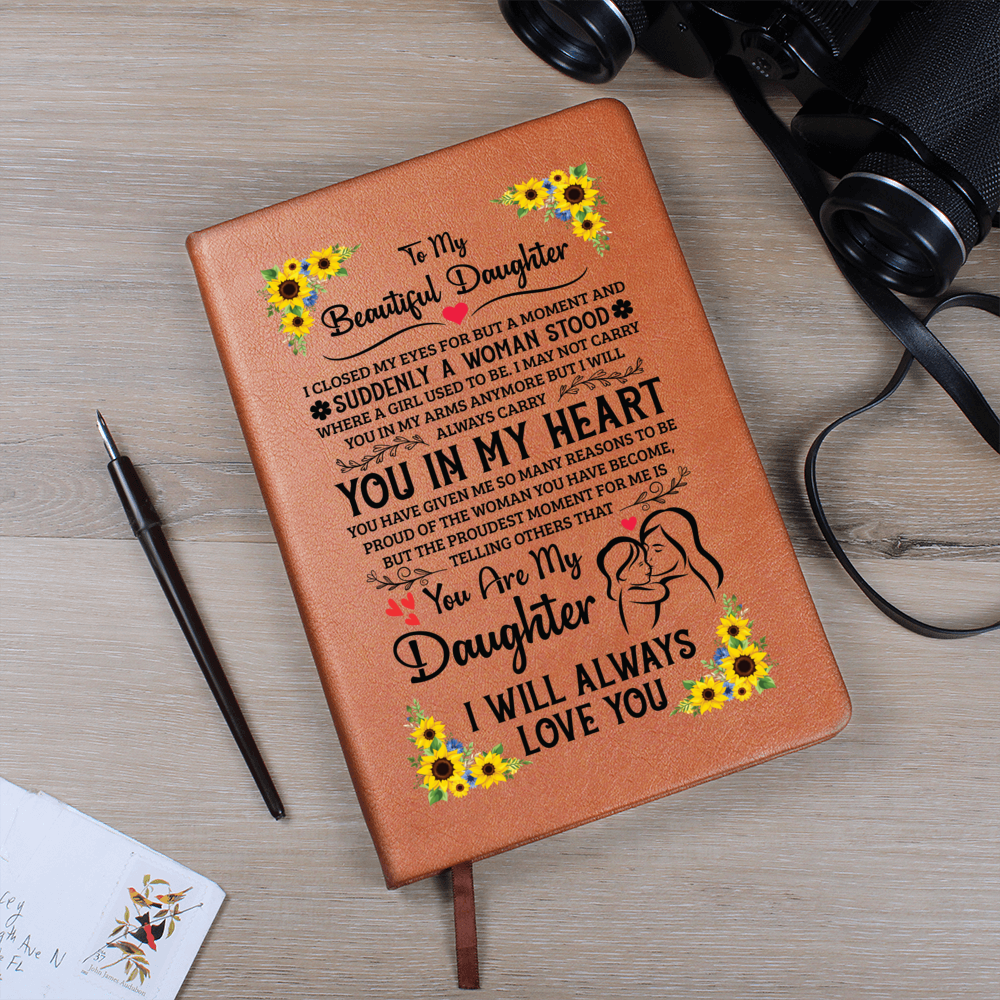 To My
Beautiful Daughter
I CLOSED MY EYES FOR BUT A MOMENT AND
SUDDENLY A WOMAN STOOD
WHERE A GIRL USED TO BE. I MAY NOT CARRY
YOU IN MY ARMS ANYMORE BUT I WILL
ALWAYS CARRY
YOU IN MY HEART
YOU HAVE GIVEN ME SO MANY REASONS TO BE
PROUD OF THE WOMAN YOU HAVE BECOME,
BUT THE PROUDEST MOMENT FOR ME IS
TELLING OTHERS THAT
You Are My
Daughter
I WILL ALWAYS
LOVE YOU
Ave N
FL
37
John James Audubon